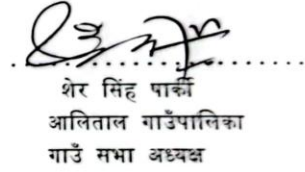 शेर सिंह पार्की
आलिताल गाउँपालिका
गाउँ सभा अध्यक्ष